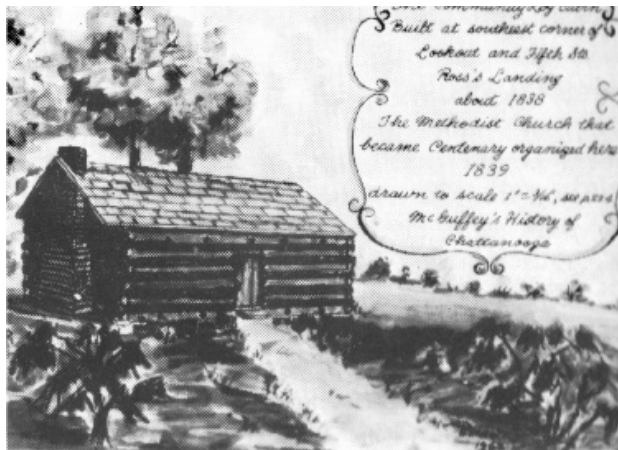 The Community Log Cabin
Built at southeast corner of
Lookout and Fifth Sts
Ross's Landing
about 1838
The Methodist Church that
became Centenary organized here
1839
drawn to scale 1" = ⅛", see pers
McGuffey's History of
Chattanooga